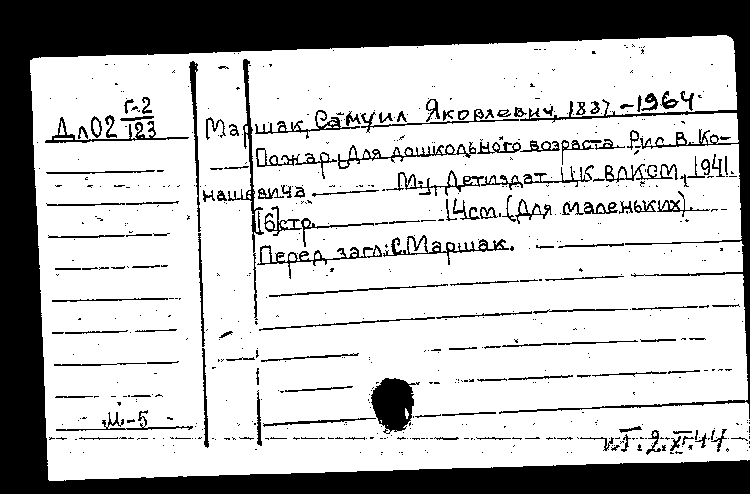 Дл02 Г-2/123
Маршак, Самуил Яковлевич, 1887.-1964
Пожар. Для дошкольного возраста. Рис. В. Ко-
нашевича. М., Детиздат ЦК ВЛКСМ, 1941.
[16]стр. 14см. (Для маленьких).
Перед загл.: С. Маршак.
М-5
2.XI.44.